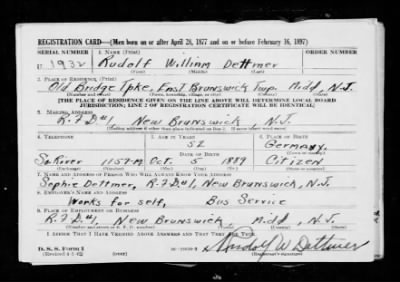 REGISTRATION CARD—(Men born on or after April 28, 1877 and on or before February 16, 1897)
SERIAL NUMBER 1. NAME (Print) ORDER NUMBER
U 1932 Rudolf William Dettmer
(First) (Middle) (Last)
2. PLACE OF RESIDENCE (Print)
Old Bridge Tpke, East Brunswick Twp. Midd, N.J.
(Number and street) (Town, township, village, or city) (County) (State)
[THE PLACE OF RESIDENCE GIVEN ON THE LINE ABOVE WILL DETERMINE LOCAL BOARD
JURISDICTION; LINE 2 OF REGISTRATION CERTIFICATE WILL BE IDENTICAL]
3. MAILING ADDRESS
R.F.D#1, New Brunswick N.J.
[Mailing address if other than place indicated on line 2. If same insert word same]
4. TELEPHONE 5. AGE IN YEARS 6. PLACE OF BIRTH
52 Germany
DATE OF BIRTH
So River 1157-M Oct. 5 1889 Citizen
7. NAME AND ADDRESS OF PERSON WHO WILL ALWAYS KNOW YOUR ADDRESS
Sophie Dettmer, R.F.D#1, New Brunswick, N.J.
8. EMPLOYER'S NAME AND ADDRESS
Works for self, Bus Service
9. PLACE OF EMPLOYMENT OR BUSINESS
R.F.D#1, New Brunswick Midd, N.J.
(Number and street or R. F. D. number) (Town) (County) (State)
I AFFIRM THAT I HAVE VERIFIED ABOVE ANSWERS AND THAT THEY ARE TRUE.
D. S. S. Form 1
(Revised 4-1-42) Rudolf W Dettmer